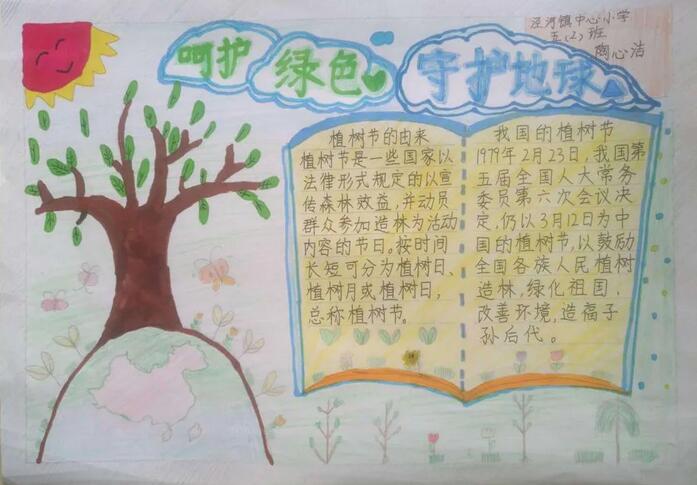 泾河镇中心小学
五(2)班
陶心洁
呵护绿色 守护地球
植树节的由来
植树节是一些国家以
法律形式规定的以宣
传森林效益,并动员
群众参加造林为活动
内容的节日。按时间
长短可分为植树日、
植树月或植树日,
总称植树节。
我国的植树节
1979年2月23日,我国第
五届全国人大常务
委员第六次会议决
定,仍以3月12日为中
国的植树节,以鼓励
全国各族人民植树
造林,绿化祖国,
改善环境,造福子
孙后代。